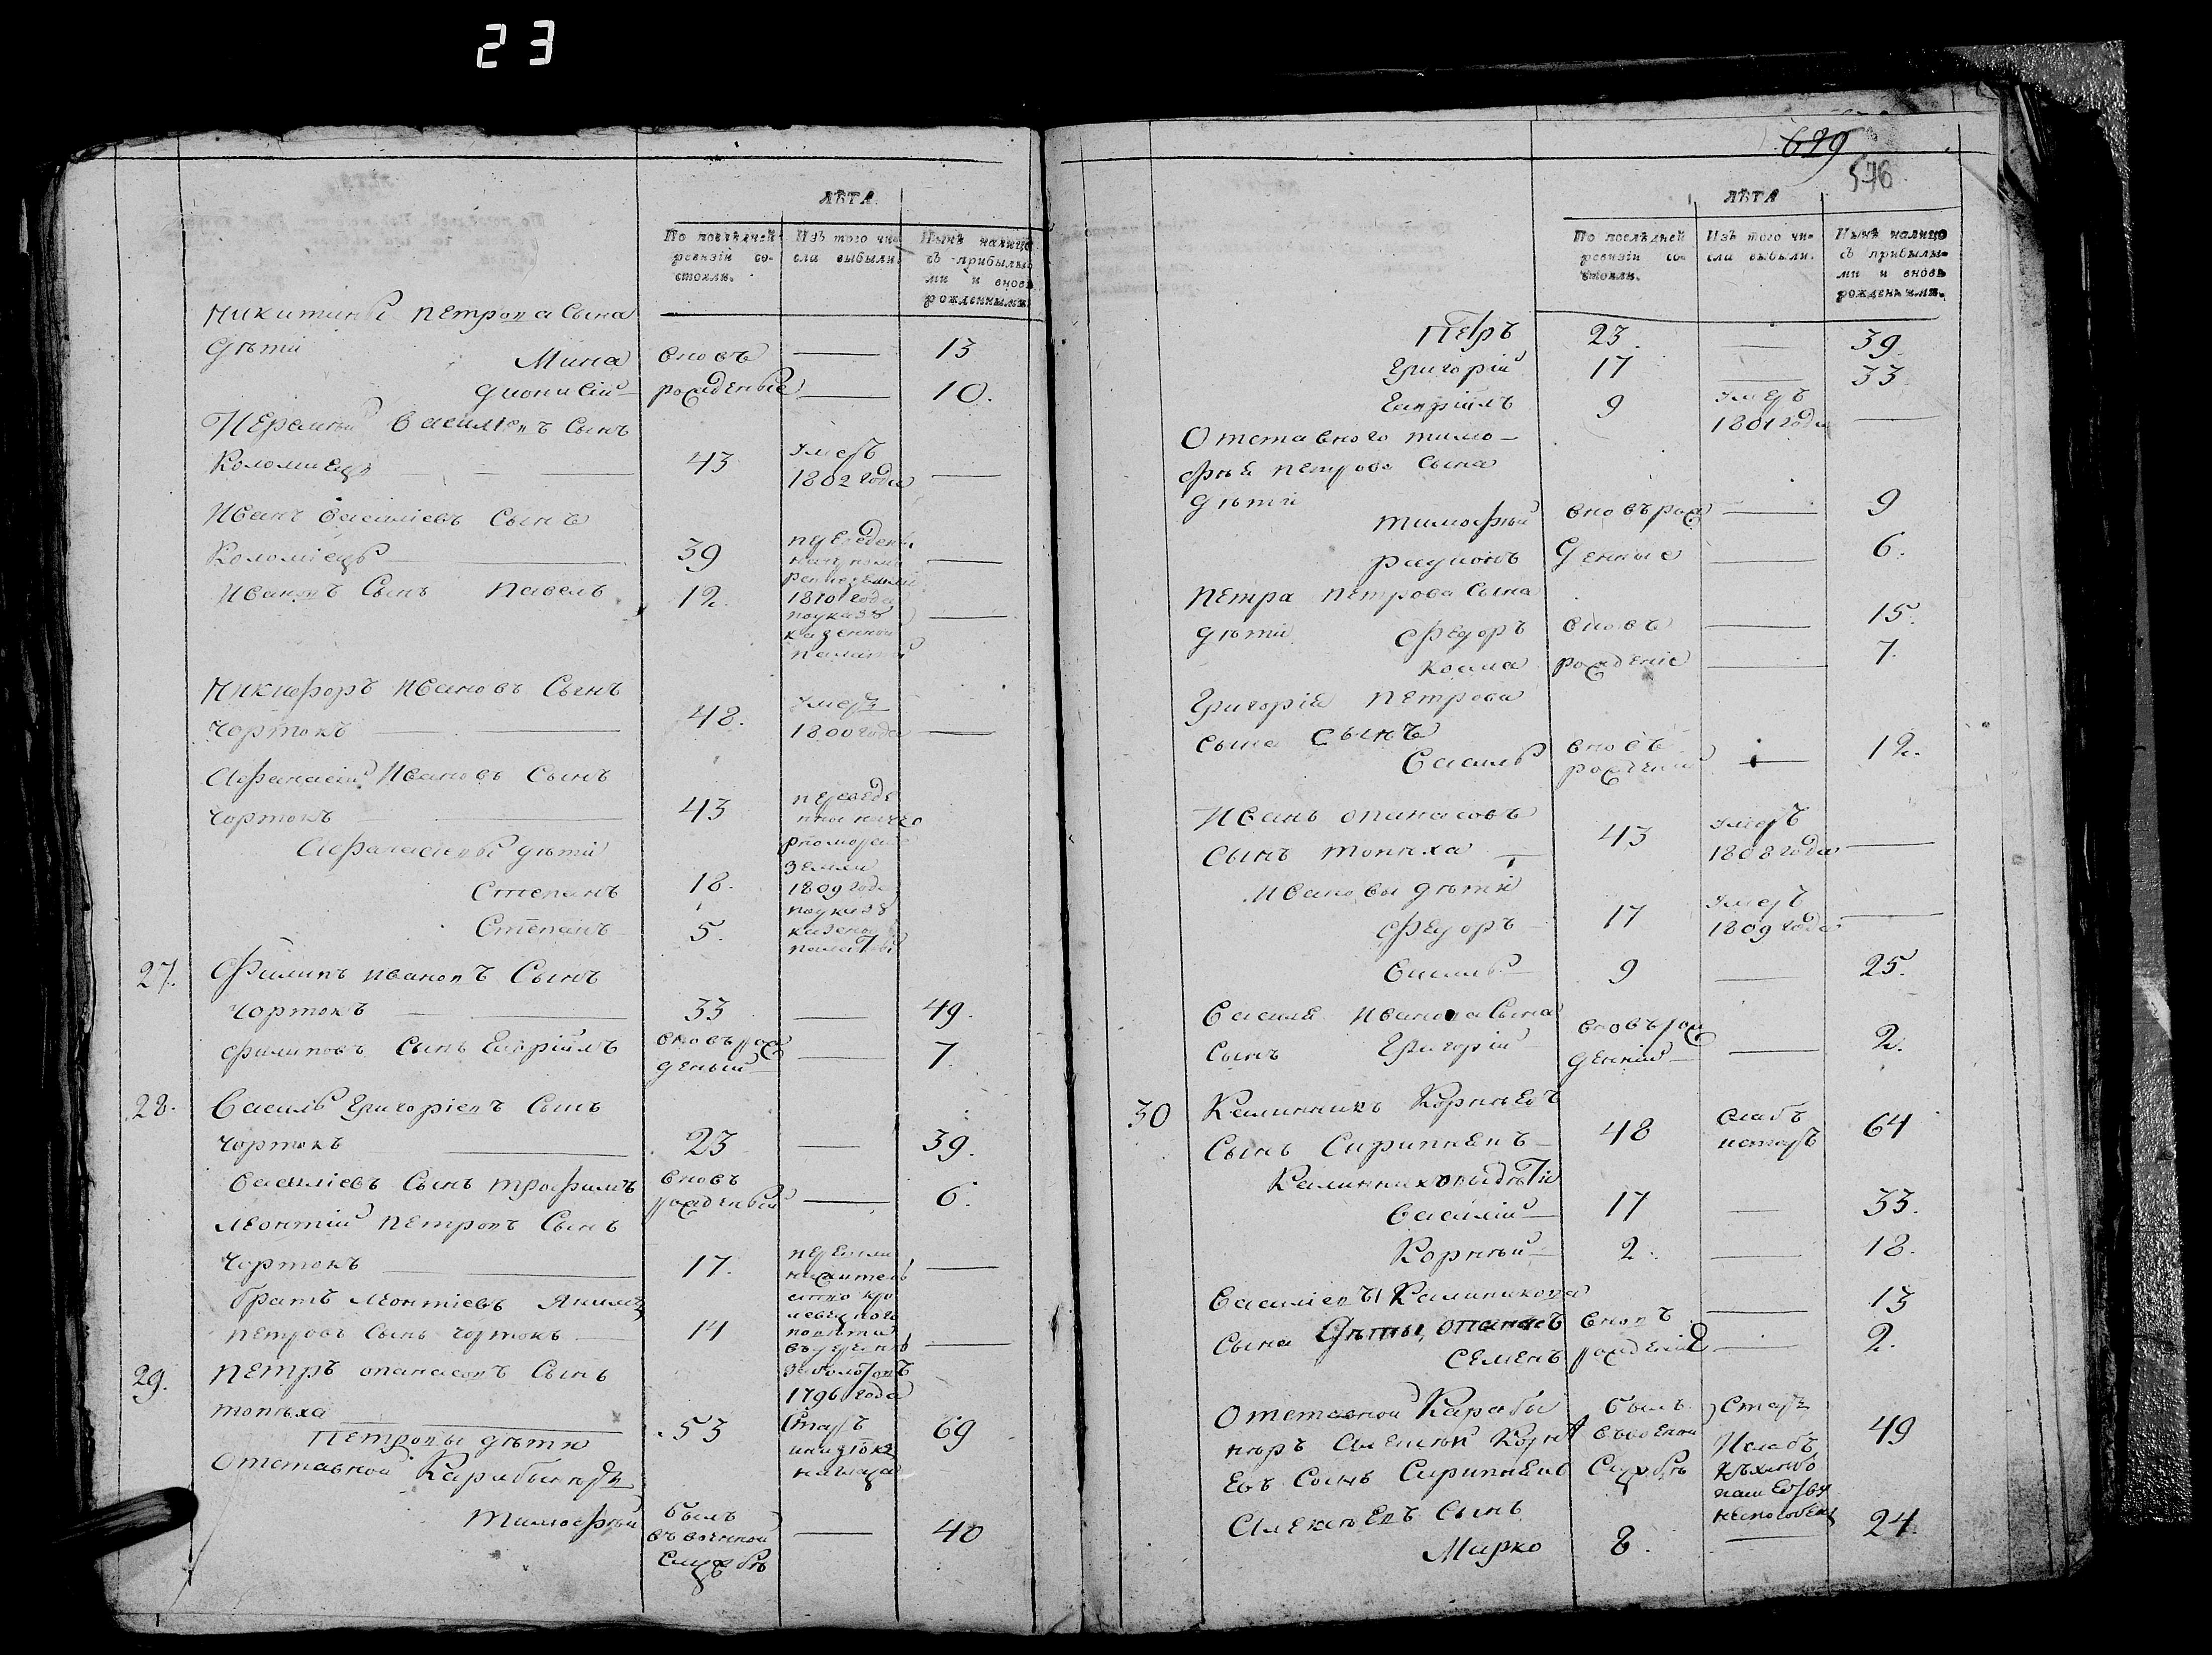 23
ЛѢТА
По послѣдней ревизіи состояли.
Изъ того числа выбыли.
Нынѣ налицо съ прибылыми и вновь рожденными.
Никитины Петрова Сына
дѣти Мина вновъ — 13
Дионисій рожденые — 10.
Иеремѣй Василіевъ Сынъ
Коломиецъ — 43 умеръ 1802 года —
Иванъ Василіевъ Сынъ
Коломіецъ — 39
Ивановъ Сынъ Павелъ 12. 1810 года по указу казенной палаты —
Никифоръ Ивановъ Сынъ
Чортокъ — 48. умеръ 1800 года —
Афанасій Ивановъ Сынъ
Чортокъ — 43
Афанасіевы дѣти земли
Степанъ 18. 1809 года
Степанъ 5. по указу казеной палаты
27. Филипъ Ивановъ Сынъ
Чортокъ — 33 — 49.
Филиповъ Сынъ Гаврійлъ вновъ рожденый — 7.
28. Василь Григоріевъ Сынъ
Чортокъ — 23 — 39.
Василіевъ Сынъ Трофимъ вновъ рожденый — 6.
Леонтій Петровъ Сынъ
Чортокъ — 17. —
братъ Леонтіевъ Якимъ
Петровъ Сынъ Чортокъ — 14 1796 года —
29. Петръ Опанасовъ Сынъ
Топѣха — 53 Старъ 69
Петровы дѣти
Отставной Карабинеръ
Тимофѣй былъ въ военной Службѣ — 40
629
576
ЛѢТА
По послѣдней ревизіи состояли.
Изъ того числа выбыли.
Нынѣ налицо съ прибылыми и вновь рожденными.
Петръ 23. — 39.
Григорій 17 — 33.
Гаврійлъ 9 умеръ 1801 года —
Отставного Тимо-
фѣя Петрова Сына
дѣти Тимофѣй вновъ рож — 9
Радионъ денные — 6.
Петра Петрова Сына
дѣти Федоръ вновъ — 15.
Козма рожденіе — 7.
Григорія Петрова
Сына Сынъ
Василь вновъ рожденій — 12.
Иванъ Опанасовъ
Сынъ Топѣха — 43 умеръ 1808 года —
Ивановы дѣти
Федоръ 17 умеръ 1809 года —
Василь 9 — 25.
Василя Иванова Сына
Сынъ Григорій вновъ рожденній — 2.
30 Калинникъ Корнѣевъ
Сынъ Сирипнѣвъ — 48 Слабъ и старъ 64
Калинниковы дѣти
Василій — 17 — 33.
Корнѣй — 2. — 18.
Василіевы Калиникова
Сына Дѣти, Опанасъ вновъ — 13
Семенъ рожденіе — 2.
Отставной Караби
нѣръ Алексѣй Корнѣ
евъ Сынъ Сирипнѣвъ былъ въ военной Службѣ Старъ и слабъ 49
Алексѣевъ Сынъ
Марко 8. — 24